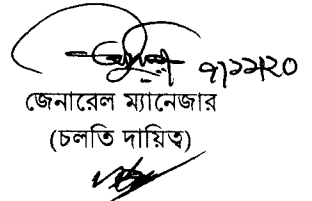 ৭/১১/২০
জেনারেল ম্যানেজার
(চলতি দায়িত্ব)